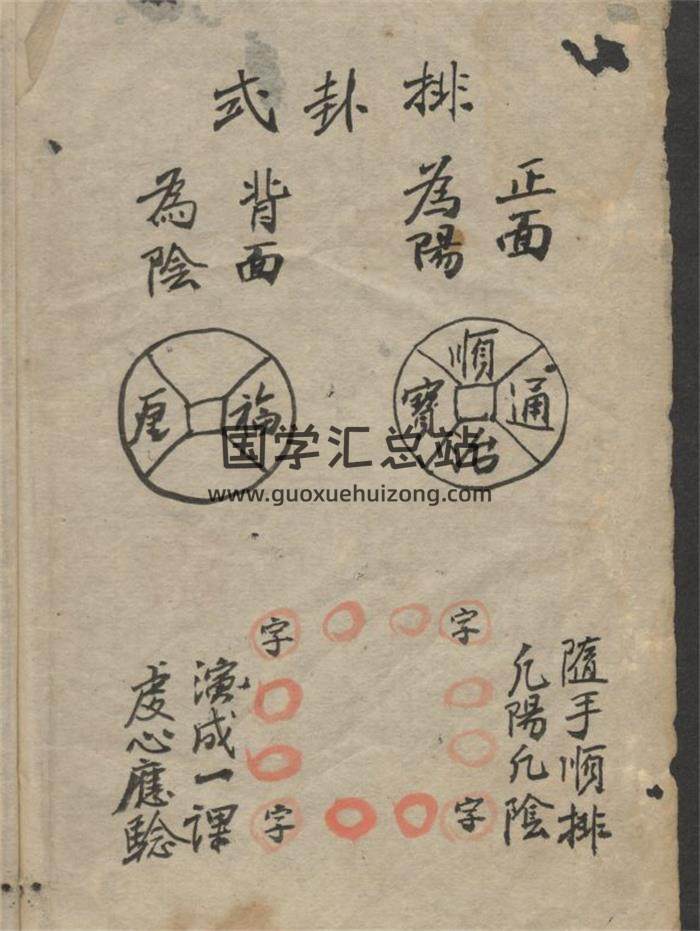 排卦式
正面
為陽
背面
為陰
順治通寶
福
厘
国学汇总站
www.guoxuehuizong.com
字
字
字
字
隨手順排
几陽几陰
演成一課
虔心應騐